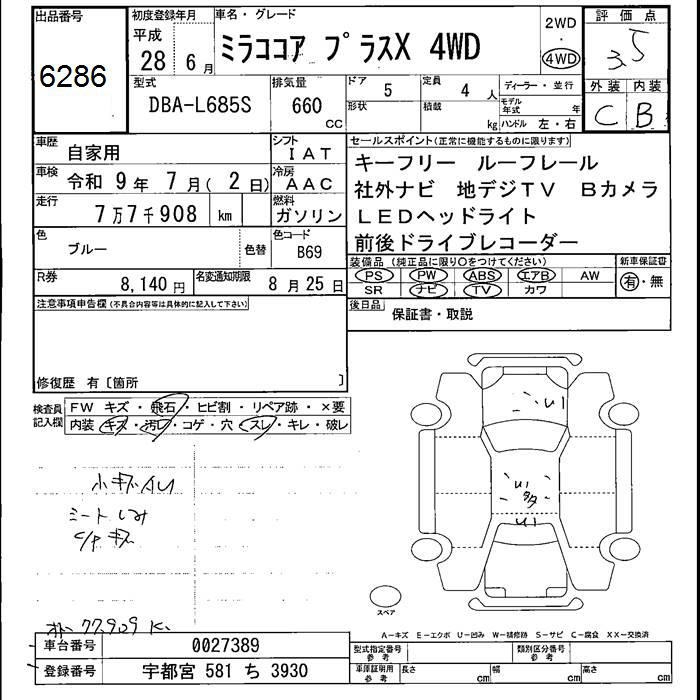 出品番号
6286
初度登録年月
平成
28年 6月
車名・グレード
ミラココア プラスX 4WD
2WD
・
4WD
評価点
3.5
外装 内装
C B
型式
DBA-L685S
排気量
660
CC
ドア 5
定員 4 人
形状
積載 kg
ディーラー・並行
モデル年式 年
ハンドル 左・右
車歴 自家用
シフト IAT
車検 令和 9年 7月( 2日)
冷房 AAC
走行 7万7千908 km
燃料 ガソリン
色 ブルー 色替
色コード B69
R券 8,140円
名変通知期限 8月25日
セールスポイント(正常に機能するものに限ります)
キーフリー ルーフレール
社外ナビ 地デジTV Bカメラ
LEDヘッドライト
前後ドライブレコーダー
装備品 (純正品に限り○をつけてください)
新車保証書
PS PW ABS エアB AW
SR ナビ TV カワ
有・無
後日品 保証書・取説
注意事項申告欄(不具合内容等は具体的に記入して下さい)
修復歴 有〔箇所 〕
検査員記入欄
FW キズ・飛石・ヒビ割・リペア跡・×要
内装 キズ・汚れ・コゲ・穴・スレ・キレ・破レ
シートしみ
C/P キズ
77,909 K
スペア
A-キズ E-エクボ U-凹み W-補修跡 S-サビ C-腐食 XX-交換済
車台番号 0027389
登録番号 宇都宮 581 ち 3930
型式指定番号 参考
類別区分番号 参考
車庫証明用 参考
長さ cm 幅 cm 高さ cm